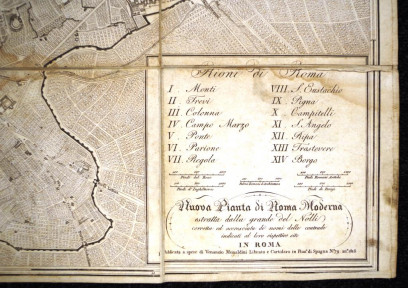 Rioni di Roma
I Monti
II Trevi
III Colonna
IV Campo Marzo
V Ponte
VI Parione
VII Regola
VIII S. Eustachio
IX Pigna
X Campitelli
XI S. Angelo
XII Ripa
XIII Trastevere
XIV Borgo
Nuova Pianta di Roma Moderna
estratta dalla grande del Nolli
corretta ed accresciuta di nomi delle contrade
indicati al loro rispettivo sito
IN ROMA
a spese di Venanzio Monaldini Librato e Cartolaro in Piaz. di Spagna No. 79